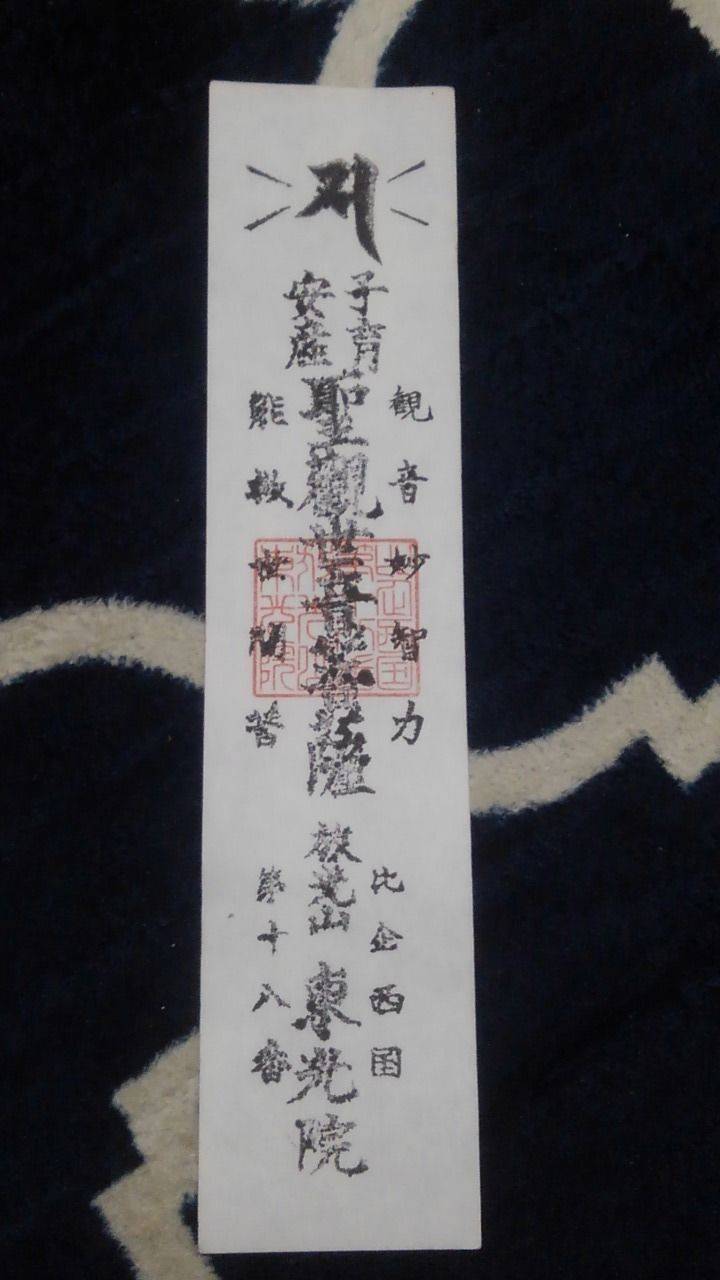 子育
安産
観音妙智力
聖觀世音菩薩
能救世間苦
比企西国
放光山
東光院
第十八番